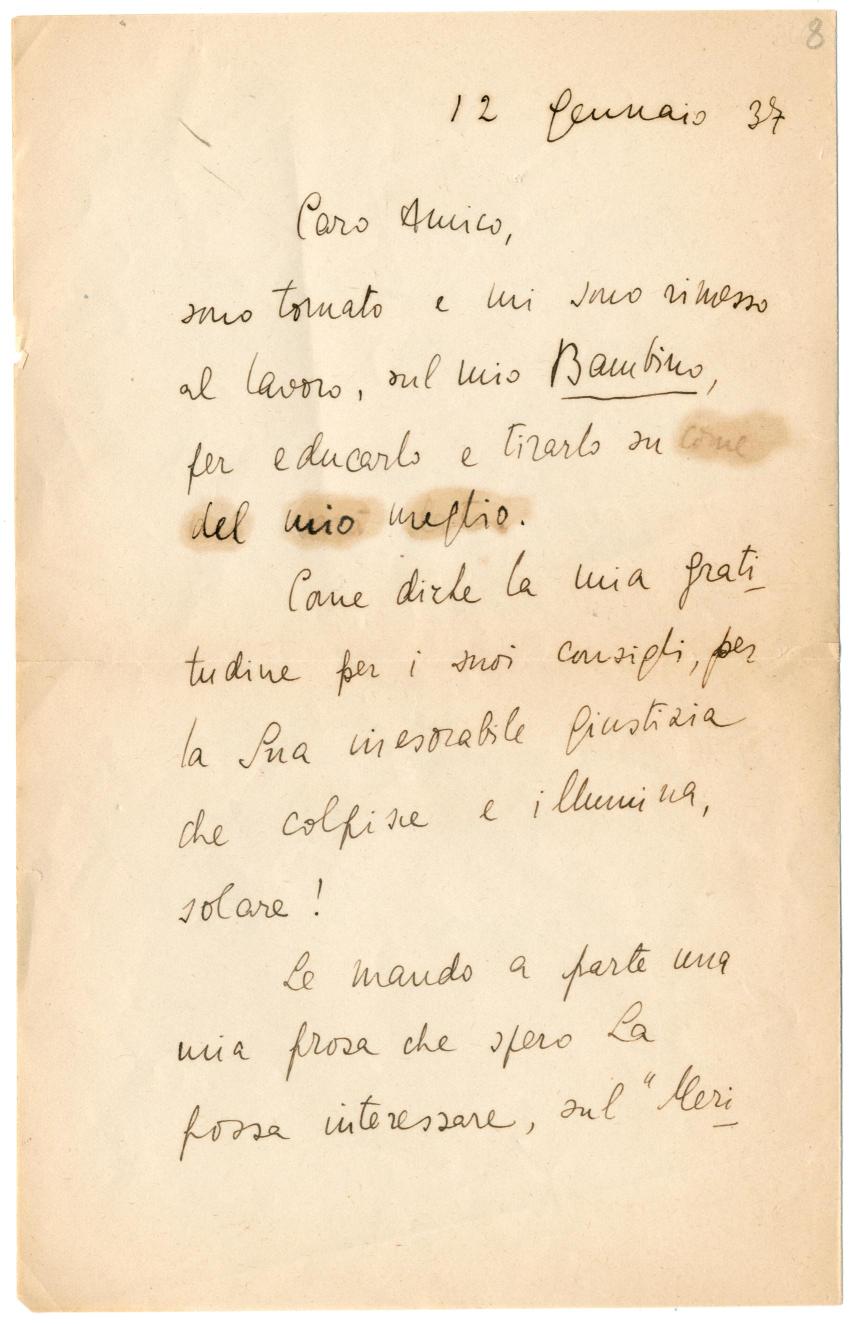 8
12 Gennaio 37
Caro Amico,
sono tornato e mi sono rimesso
al lavoro, sul mio Bambino,
per educarlo e tirarlo su come
del mio meglio.
Come dirle la mia grati-
tudine per i suoi consigli, per
la Sua inesorabile giustizia
che colpisce e illumina,
solare!
Le mando a parte una
mia prosa che spero La
possa interessare, sul "Meri-